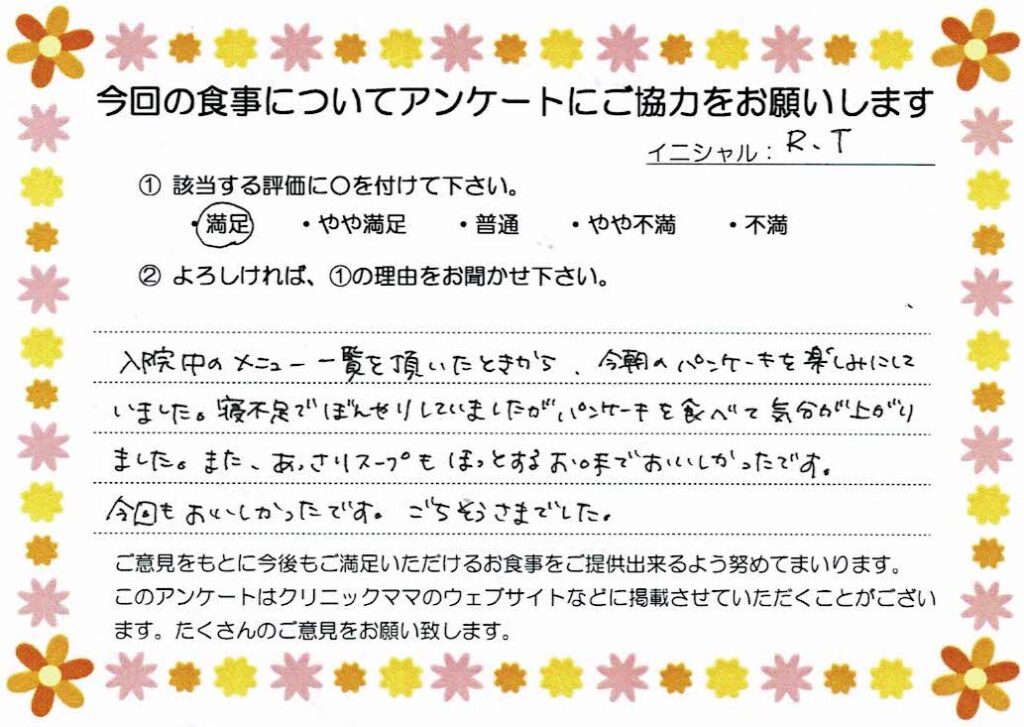 今回の食事についてアンケートにご協力をお願いします
イニシャル： R、T
① 該当する評価に〇を付けて下さい。
・満足 ・やや満足 ・普通 ・やや不満 ・不満
② よろしければ、①の理由をお聞かせ下さい。
入院中のメニュー一覧を頂いたときから、今朝のパンケーキを楽しみにして
いました。寝不足でぼんやりしていましたがパンケーキを食べて気分が上がり
ました。また、あっさりスープもほっとするお味でおいしかったです。
今回もおいしかったです。ごちそうさまでした。
ご意見をもとに今後もご満足いただけるお食事をご提供出来るよう努めてまいります。
このアンケートはクリニックママのウェブサイトなどに掲載させていただくことがござい
ます。たくさんのご意見をお願い致します。